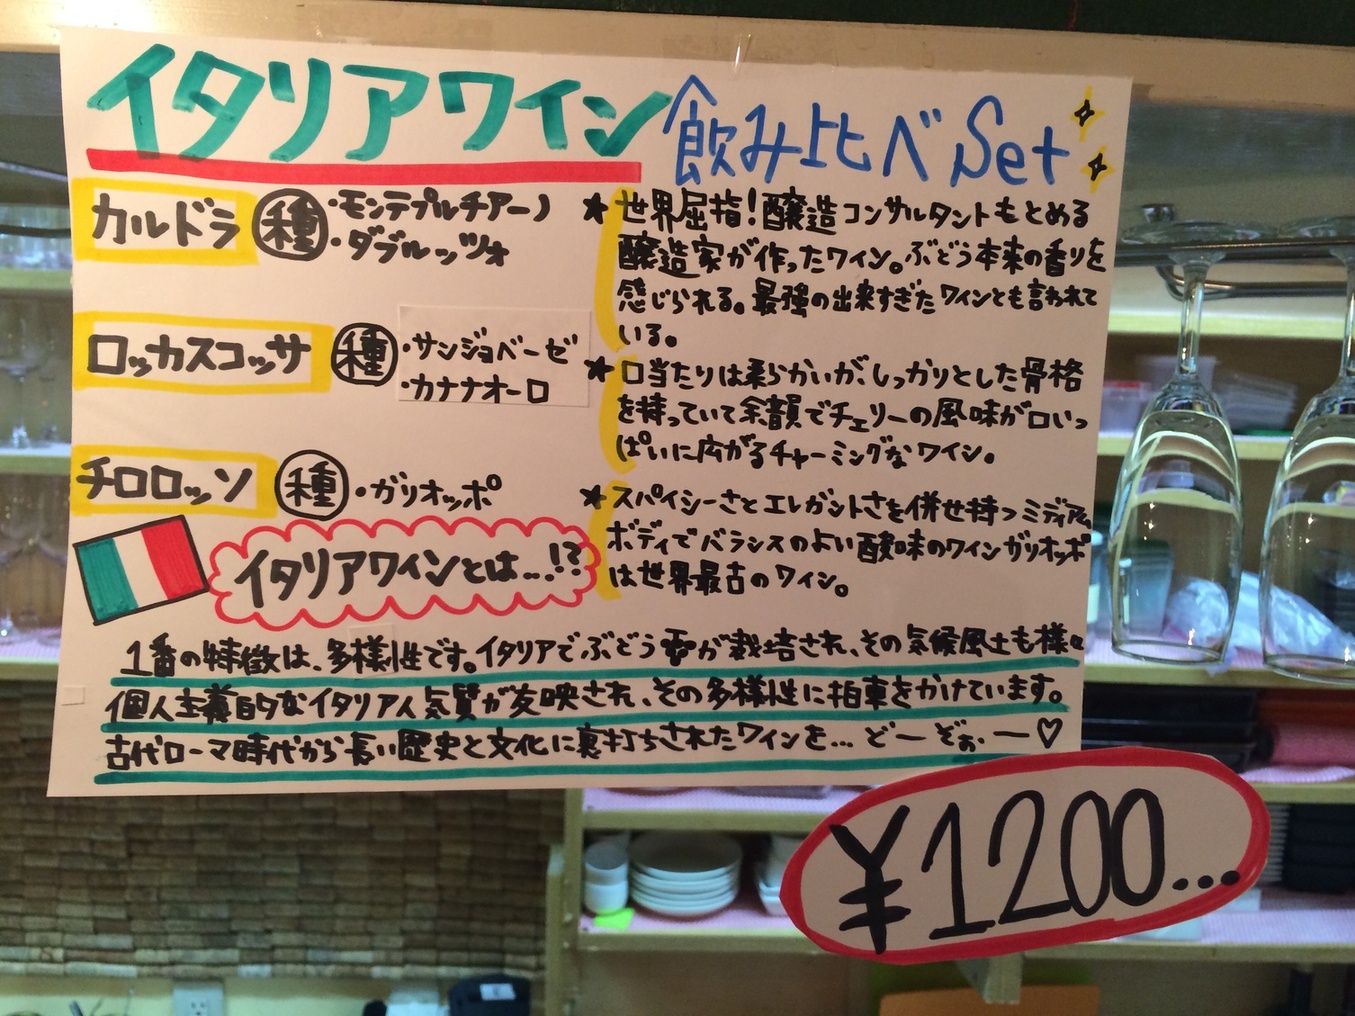 イタリアワイン 飲み比べSet
カルドラ 種 ・モンテプルチアーノ
・ダブルッツォ
★世界屈指!醸造コンサルタントもとめる
醸造家が作ったワイン。ぶどう本来の香りを
感じられる。最強の出来すぎたワインとも言われて
いる。
ロッカスコッサ 種 ・サンジョベーゼ
・カナナオーロ
★口当たりは柔らかいが、しっかりとした骨格
を持っていて余韻でチェリーの風味が口いっ
ぱいに広がるチャーミングなワイン。
チロロッソ 種 ・ガリオッポ
★スパイシーさとエレガントさを併せ持つミディアム
ボディでバランスのよい酸味のワインガリオッポ
は世界最古のワイン。
イタリアワインとは...!?
1番の特徴は、多様性です。イタリアでぶどうが栽培され、その気候風土も様々
個人主義的なイタリア人気質が反映され、その多様性に拍車をかけています。
古代ローマ時代から長い歴史と文化に裏打ちされたワインを... どーぞぉーー♡
¥1200...